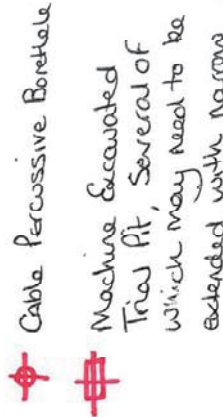 Cable Percussive Borehole
Machine Excavated
Trial Pit, Several of
which may need to be
extended with narrow